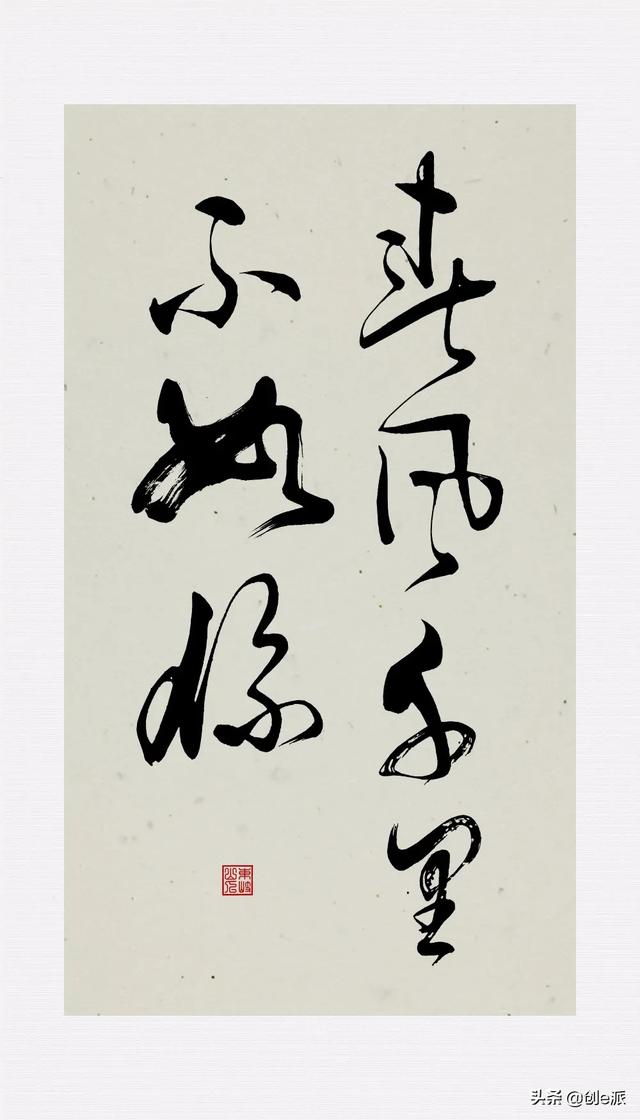 春风千里
不如你
头条 @创e派